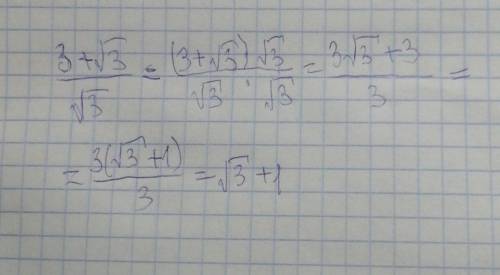 (3+√3)/√3 = ((3+√3)·√3)/(√3·√3) = (3√3+3)/3 =
= 3(√3+1)/3 = √3+1